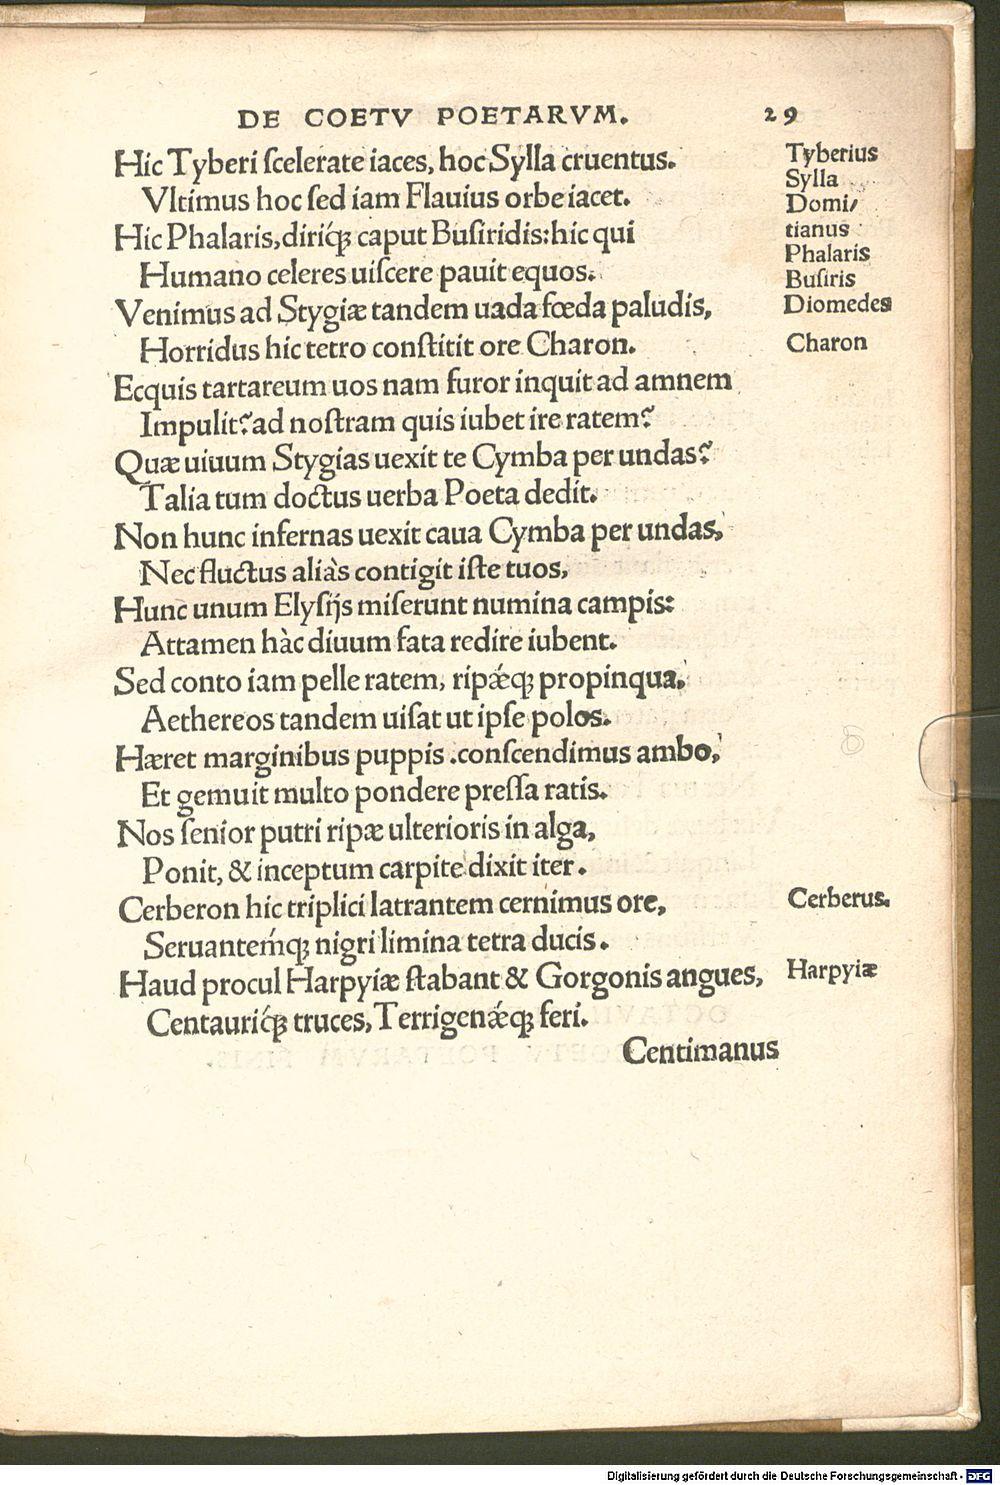 DE COETV POETARVM. 29
Hic Tyberi ſcelerate iaces, hoc Sylla cruentus. Tyberius
Vltimus hoc ſed iam Flauius orbe iacet. Sylla
Domi/
Hic Phalaris, diriq́ꝫ caput Buſiridis: hic qui tianus
Phalaris
Humano celeres uiſcere pauit equos. Buſiris
Venimus ad Stygiæ tandem uada fœda paludis, Diomedes
Horridus hic tetro conſtitit ore Charon. Charon
Ecquis tartareum uos nam furor inquit ad amnem
Impulit? ad noſtram quis iubet ire ratem?
Quæ uiuum Stygias uexit te Cymba per undas?
Talia tum doctus uerba Poeta dedit.
Non hunc infernas uexit caua Cymba per undas,
Nec fluctus aliàs contigit iſte tuos,
Hunc unum Elyſijs miſerunt numina campis:
Attamen hàc diuum fata redire iubent.
Sed conto iam pelle ratem, ripǽqꝫ propinqua,
Aethereos tandem uiſat ut ipſe polos.
Hæret marginibus puppis .conſcendimus ambo,
Et gemuit multo pondere preſſa ratis.
Nos ſenior putri ripæ ulterioris in alga,
Ponit, & inceptum carpite dixit iter.
Cerberon hic triplici latrantem cernimus ore, Cerberus.
Seruanteḿqꝫ nigri limina tetra ducis.
Haud procul Harpyiæ ſtabant & Gorgonis angues, Harpyiæ
Centauriq́ꝫ truces, Terrigenǽqꝫ feri.
Centimanus
Digitalisierung gefördert durch die Deutsche Forschungsgemeinschaft - DFG